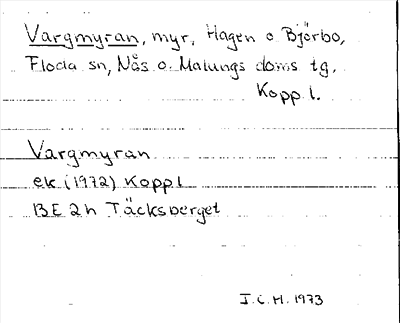 Vargmyran, myr, Hagen o Björbo,
Floda sn, Nås o. Malungs doms tg,
Kopp l.
Vargmyran
ek (1972) Kopp l
13 E 2h Täcksberget
I.C.H. 1973